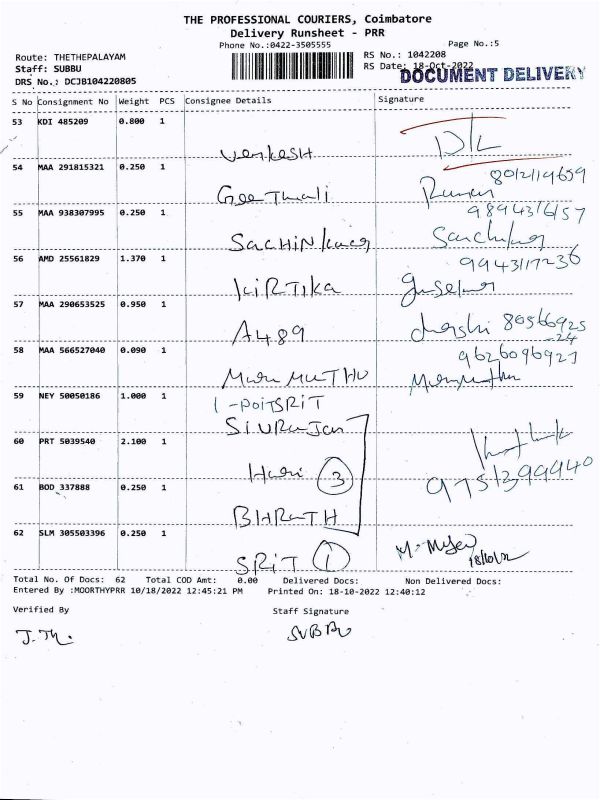 THE PROFESSIONAL COURIERS, Coimbatore
Delivery Runsheet - PRR
Phone No.:0422-3505555
Page No.:5
Route: THETHEPALAYAM
RS No.: 1042208
Staff: SUBBU
RS Date: 18-Oct-2022
DRS No.: DCJB104220805
DOCUMENT DELIVERY
S No Consignment No Weight PCS Consignee Details Signature
53 KDI 485209 0.800 1
Venkesh D/L
54 MAA 291815321 0.250 1 8012119659
Geethali
55 MAA 938307995 0.250 1 9894316157
SACHIN
56 AMD 25561829 1.370 1 9943117236
KIRTIKA
57 MAA 290653525 0.950 1
A489 80566925
-24
58 MAA 566527040 0.090 1 9626096921
MURUMUTHU
59 NEY 50050186 1.000 1 1-POIT SRIT
SIVRAJAN
60 PRT 5039540 2.100 1
Hari 3 9751399940
61 BOD 337888 0.250 1
BHRATH
62 SLM 305503396 0.250 1
SRIT 1
Total No. Of Docs: 62 Total COD Amt: 0.00 Delivered Docs: Non Delivered Docs:
Entered By :MOORTHYPRR 10/18/2022 12:45:21 PM Printed On: 18-10-2022 12:40:12
Verified By Staff Signature
SUBBU